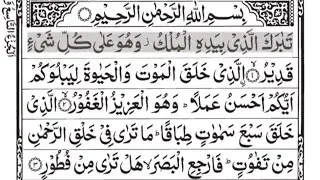 بِسْمِ اللّٰهِ الرَّحْمٰنِ الرَّحِيْمِ
تَبٰرَكَ الَّذِيْ بِيَدِهِ الْمُلْكُ ز وَهُوَ عَلٰى كُلِّ شَيْءٍ
قَدِيْرُ ۙ﴿۱﴾ الَّذِيْ خَلَقَ الْمَوْتَ وَالْحَيٰوةَ لِيَبْلُوَكُمْ
اَيُّكُمْ اَحْسَنُ عَمَلًا ؕ وَهُوَ الْعَزِيْزُ الْغَفُوْرُ ﴿۲﴾ الَّذِيْ
خَلَقَ سَبْعَ سَمٰوٰتٍ طِبَاقًا ؕ مَا تَرٰى فِيْ خَلْقِ الرَّحْمٰنِ
مِنْ تَفٰوُتٍ ؕ فَارْجِعِ الْبَصَرَ ۙ هَلْ تَرٰى مِنْ فُطُوْرٍ ﴿۳﴾